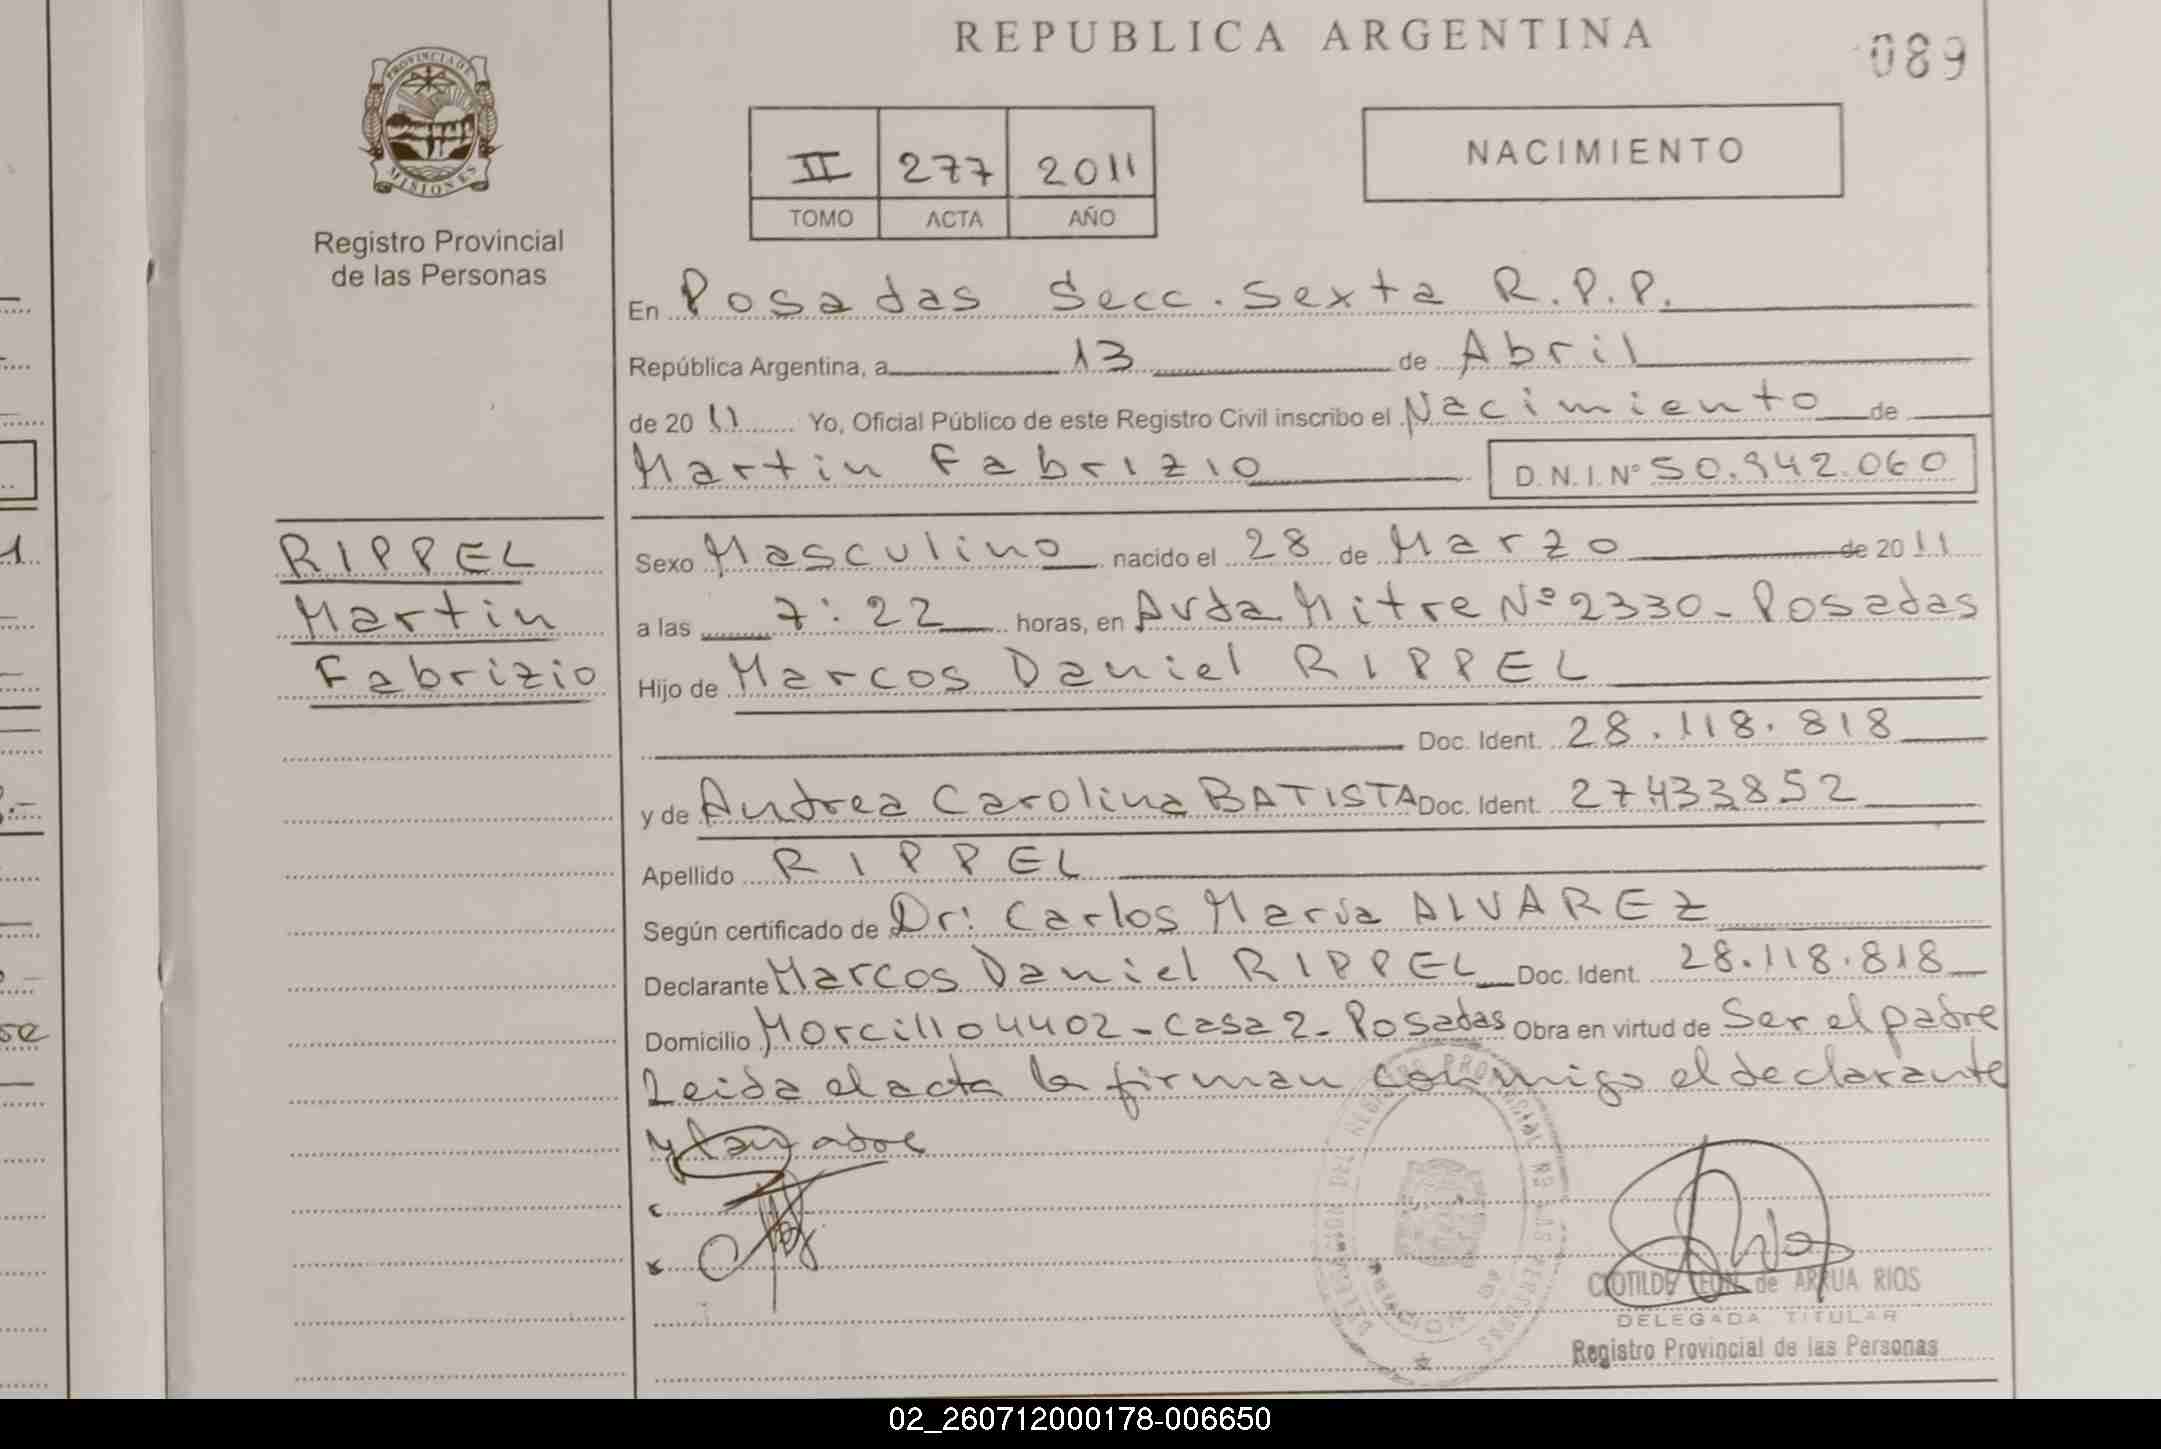 REPUBLICA ARGENTINA
089
PROVINCIA DE
MISIONES
Registro Provincial
de las Personas
II 277 2011
TOMO ACTA AÑO
NACIMIENTO
En Posadas Secc. Sexta R.P.P.
República Argentina, a 13 de Abril
de 2011 Yo, Oficial Público de este Registro Civil inscribo el Nacimiento de
Martin Fabrizio D.N.I. Nº 50.942.060
RIPPEL
Martin
Fabrizio
Sexo Masculino nacido el 28 de Marzo de 2011
a las 7:22 horas, en Avda Mitre Nº 2330 - Posadas
Hijo de Marcos Daniel RIPPEL
Doc. Ident. 28.118.818
y de Andrea Carolina BATISTA Doc. Ident. 27433852
Apellido RIPPEL
Según certificado de Dr: Carlos María ALVAREZ
Declarante Marcos Daniel RIPPEL Doc. Ident. 28.118.818
Domicilio Morcillo 4402 - Casa 2 - Posadas Obra en virtud de Ser el padre
Leida el acta la firman conmigo el declarante
y la madre
CLOTILDE LEON de ARRUA RIOS
DELEGADA TITULAR
Registro Provincial de las Personas
02_260712000178-006650